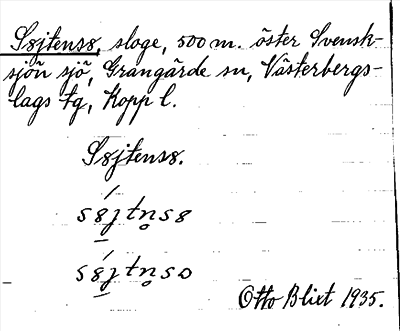 Søjtensø, sloge, 500 m. öster Svensk-
sjön sjö, Grangärde sn, Västerbergs-
lags tg, Kopp l.
Søjtensø.
søjtn̥sø
søjtn̥so
Otto Blixt 1935.